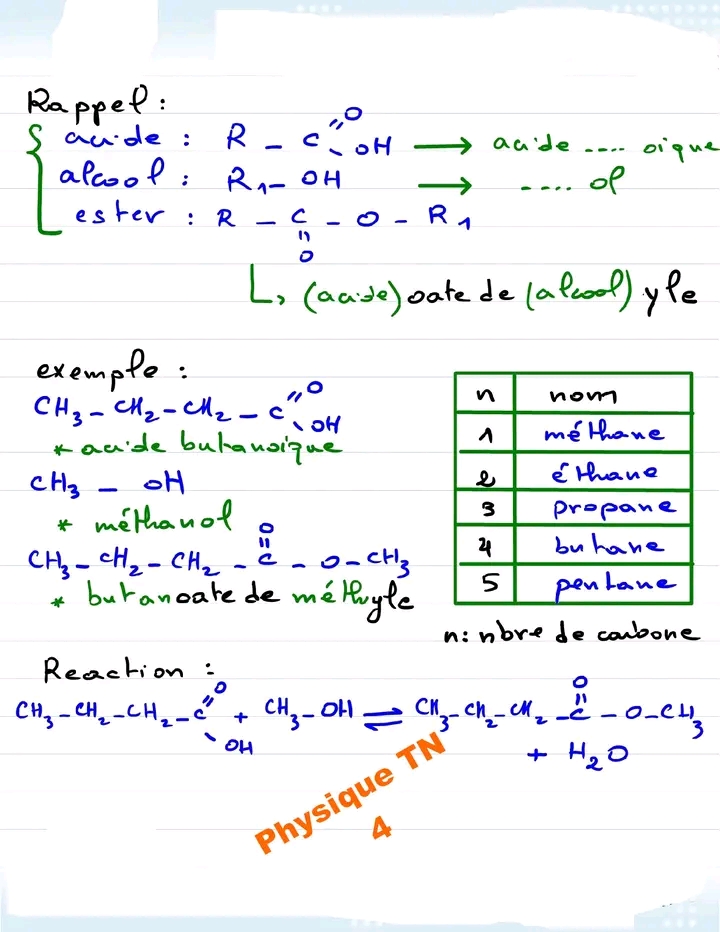 Rappel :
acide : R - C =O - OH → acide .... oïque
alcool : R1 - OH → .... ol
ester : R - C - O - R1
=
O
↳ (acide) oate de (alcool) yle
exemple :
CH3 - CH2 - CH2 - C =O - OH
* acide butanoïque
CH3 - OH
* méthanol
O
=
CH3 - CH2 - CH2 - C - O - CH3
* butanoate de méthyle
n nom
1 méthane
2 éthane
3 propane
4 butane
5 pentane
n: nbre de carbone
Reaction :
O
=
CH3 - CH2 - CH2 - C =O - OH + CH3 - OH ⇌ CH3 - CH2 - CH2 - C - O - CH3
+ H2O
Physique TN
4